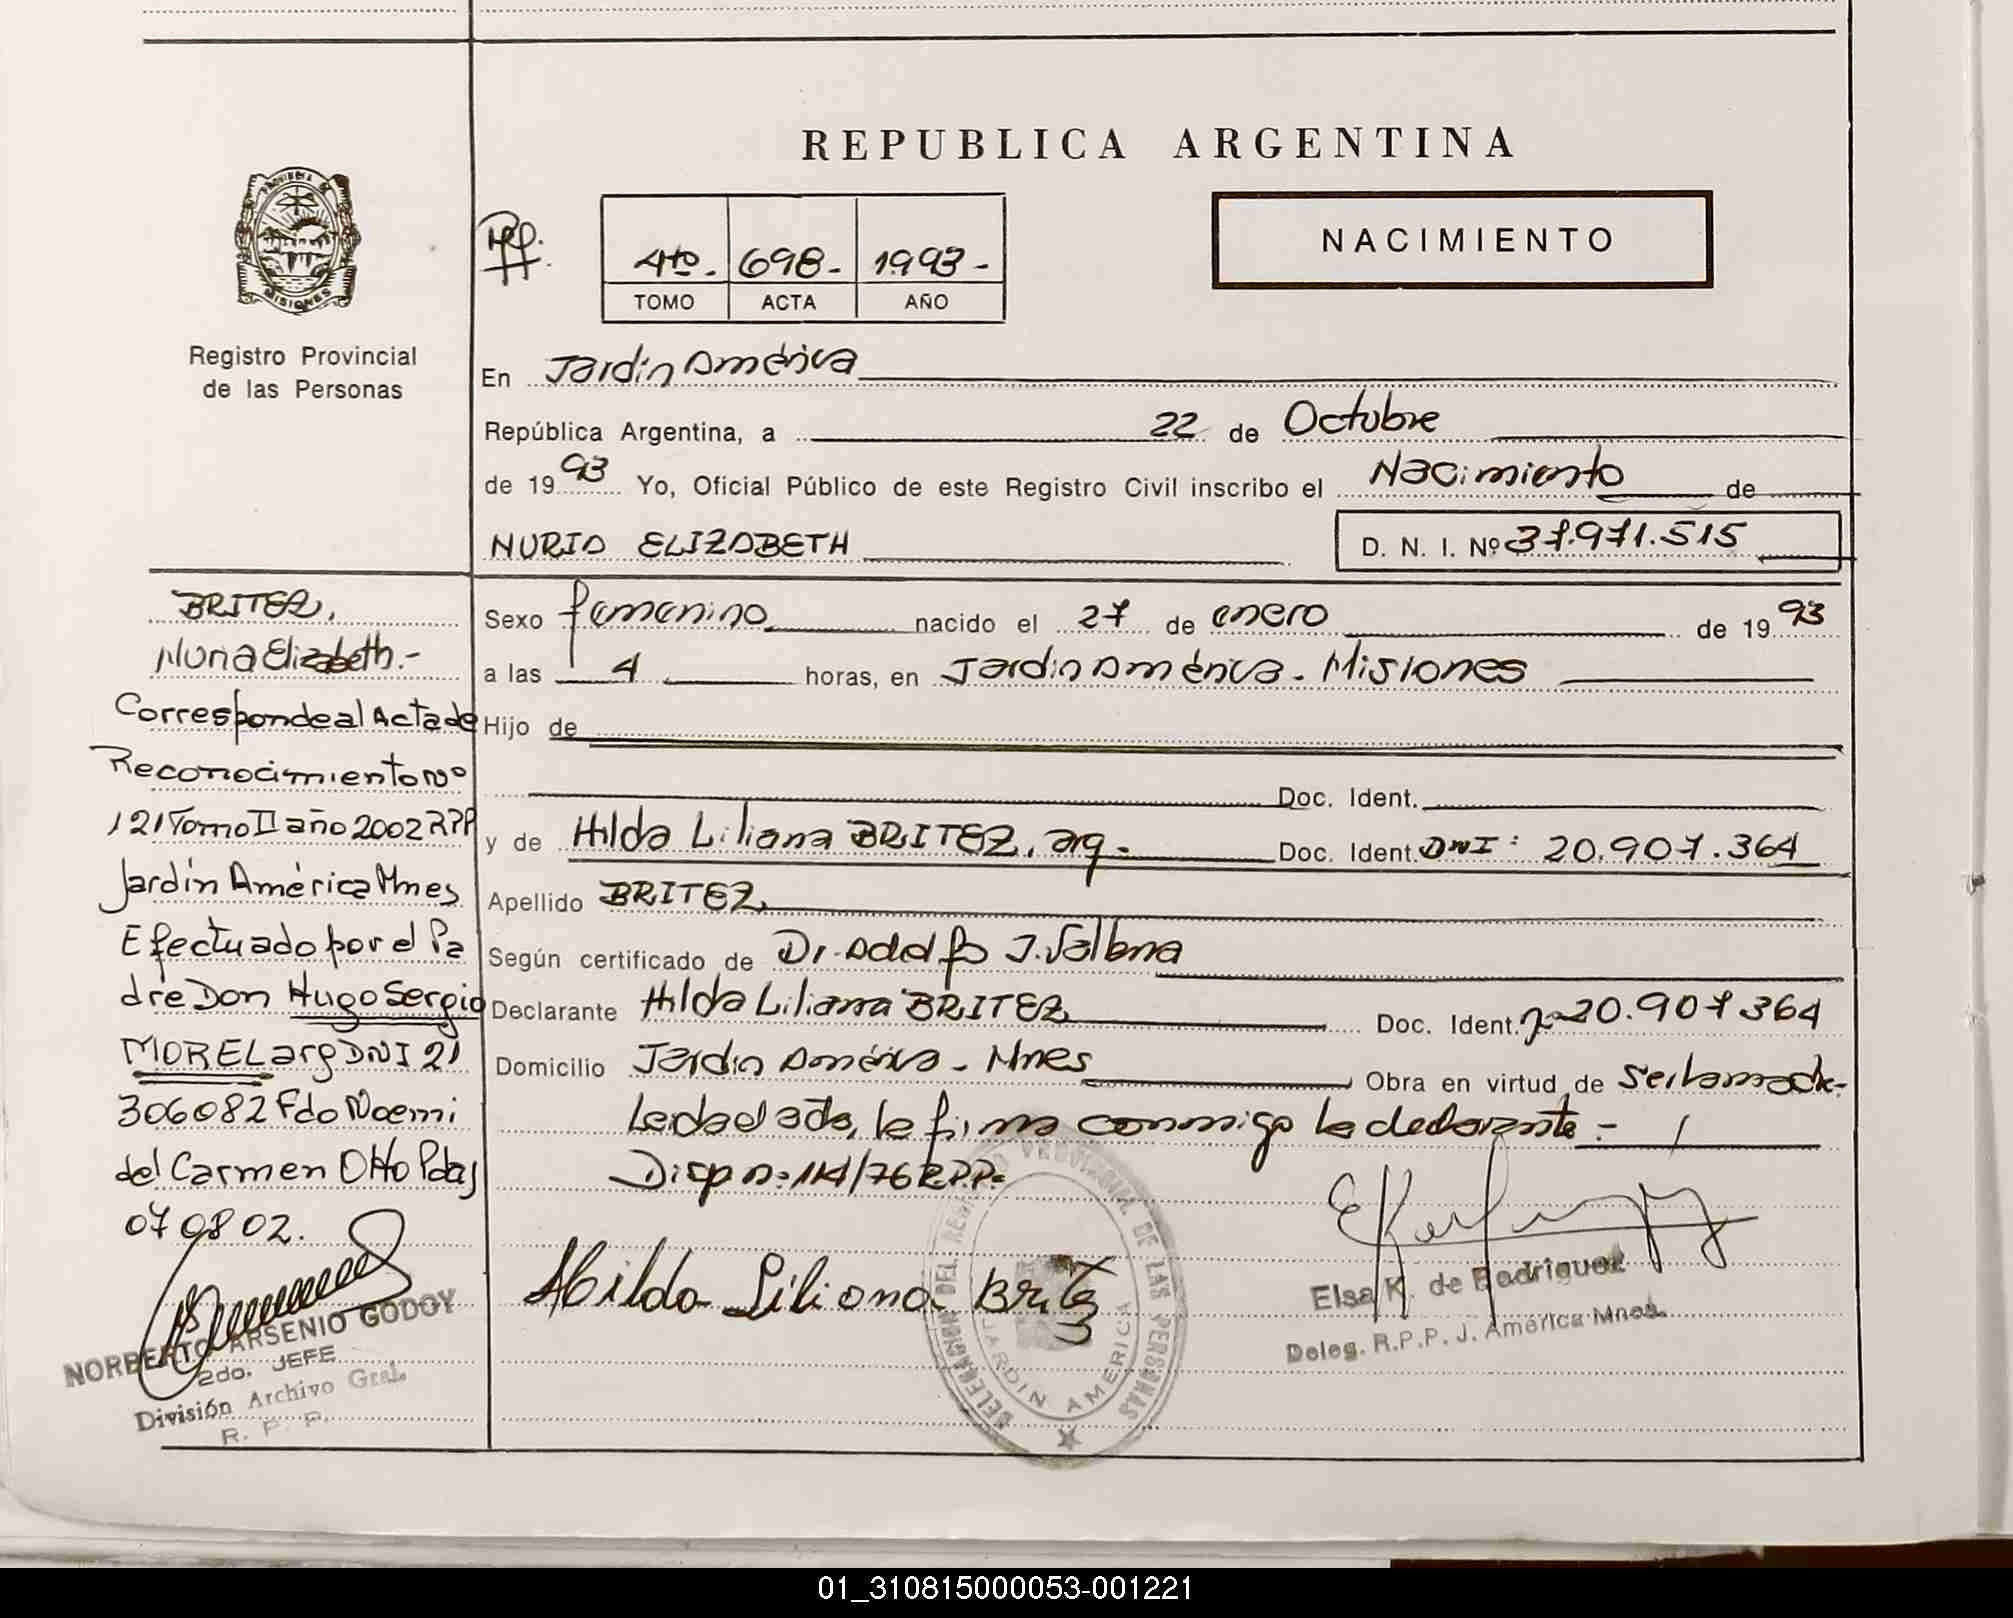 REPUBLICA ARGENTINA
PROVINCIA DE
MISIONES
Registro Provincial
de las Personas
4to. 698- 1993-
TOMO ACTA AÑO
NACIMIENTO
En Jardín América
República Argentina, a 22 de Octubre
de 1993 Yo, Oficial Público de este Registro Civil inscribo el Nacimiento de
NURIA ELIZABETH
D. N. I. Nº 37.971.515
Sexo femenino nacido el 27 de enero de 1993
a las 4 horas, en Jardin América. Misiones
Hijo de
Doc. Ident.
y de Hilda Liliana BRITEZ, arg. Doc. Ident. DNI: 20.907.364
Apellido BRITEZ
Según certificado de Dr. Adolfo J.
Declarante Hilda Liliana BRITEZ Doc. Ident. 20.907.364
Domicilio Jardin América - Mnes Obra en virtud de
firma conmigo la declarante.-
Disp nº 114/76 R.P.P.
Hilda Liliana Britez
DELEGACION DEL REGISTRO PROVINCIAL DE LAS PERSONAS
JARDIN AMERICA
Elsa K. de Rodriguez
Deleg. R.P.P. J. América Mnes.
BRITEZ,
Nuria Elizabeth.-
Corresponde al Acta de
Reconocimiento Nº
121 Tomo II año 2002 RPP
Jardín América Mnes
Efectuado por el Pa
dre Don Hugo Sergio
MOREL arg DNI 21
306082 Fdo Noemi
del Carmen Otto Pdas
07 08 02.
NORBERTO ARSENIO GODOY
2do. JEFE
División Archivo Gral.
R. P. P.
01_310815000053-001221